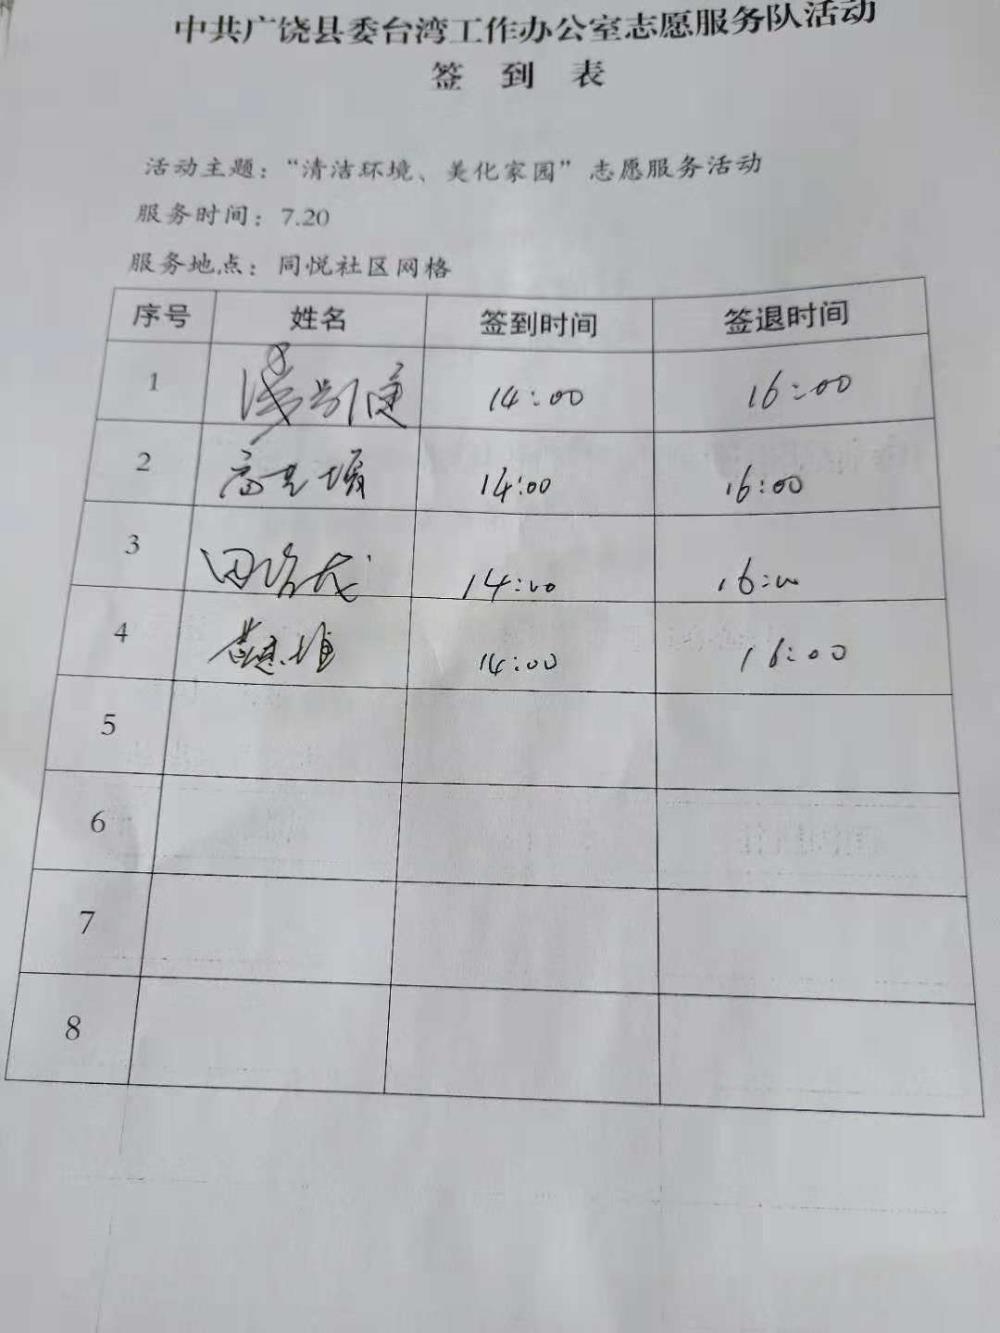 中共广饶县委台湾工作办公室志愿服务队活动
签 到 表
活动主题：“清洁环境、美化家园”志愿服务活动
服务时间：7.20
服务地点：同悦社区网格
序号 姓名 签到时间 签退时间
1 14:00 16:00
2 14:00 16:00
3 14:00 16:00
4 14:00 16:00
5
6
7
8